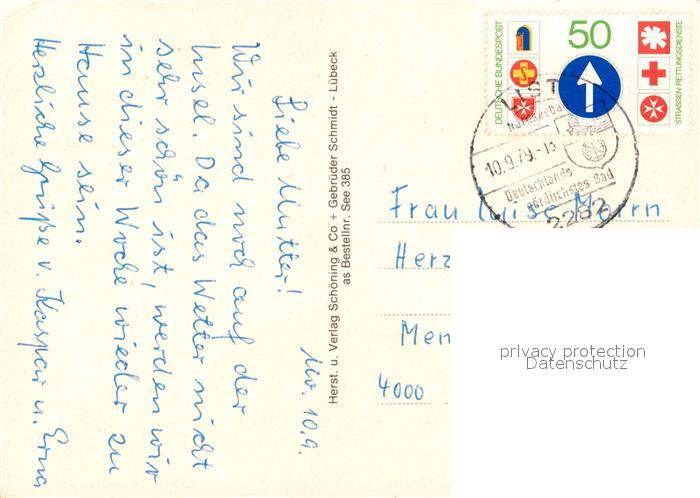 Mo. 10.9.
Liebe Mutter!
Wir sind noch auf der
Insel. Da das Wetter nicht
sehr schön ist, werden wir
in dieser Woche wieder zu
Hause sein.
Herzliche Grüße v. Kaspar u. Erna
Herst. u. Verlag Schöning & Co + Gebrüder Schmidt - Lübeck
as Bestellnr. See 385
DEUTSCHE BUNDESPOST
50
STRASSEN-RETTUNGSDIENSTE
LIST
Nordseebad
10.9.79.-15
Deutschlands
nördlichstes Bad
2282
Frau Luise
Herz
Men
4000
privacy protection
Datenschutz